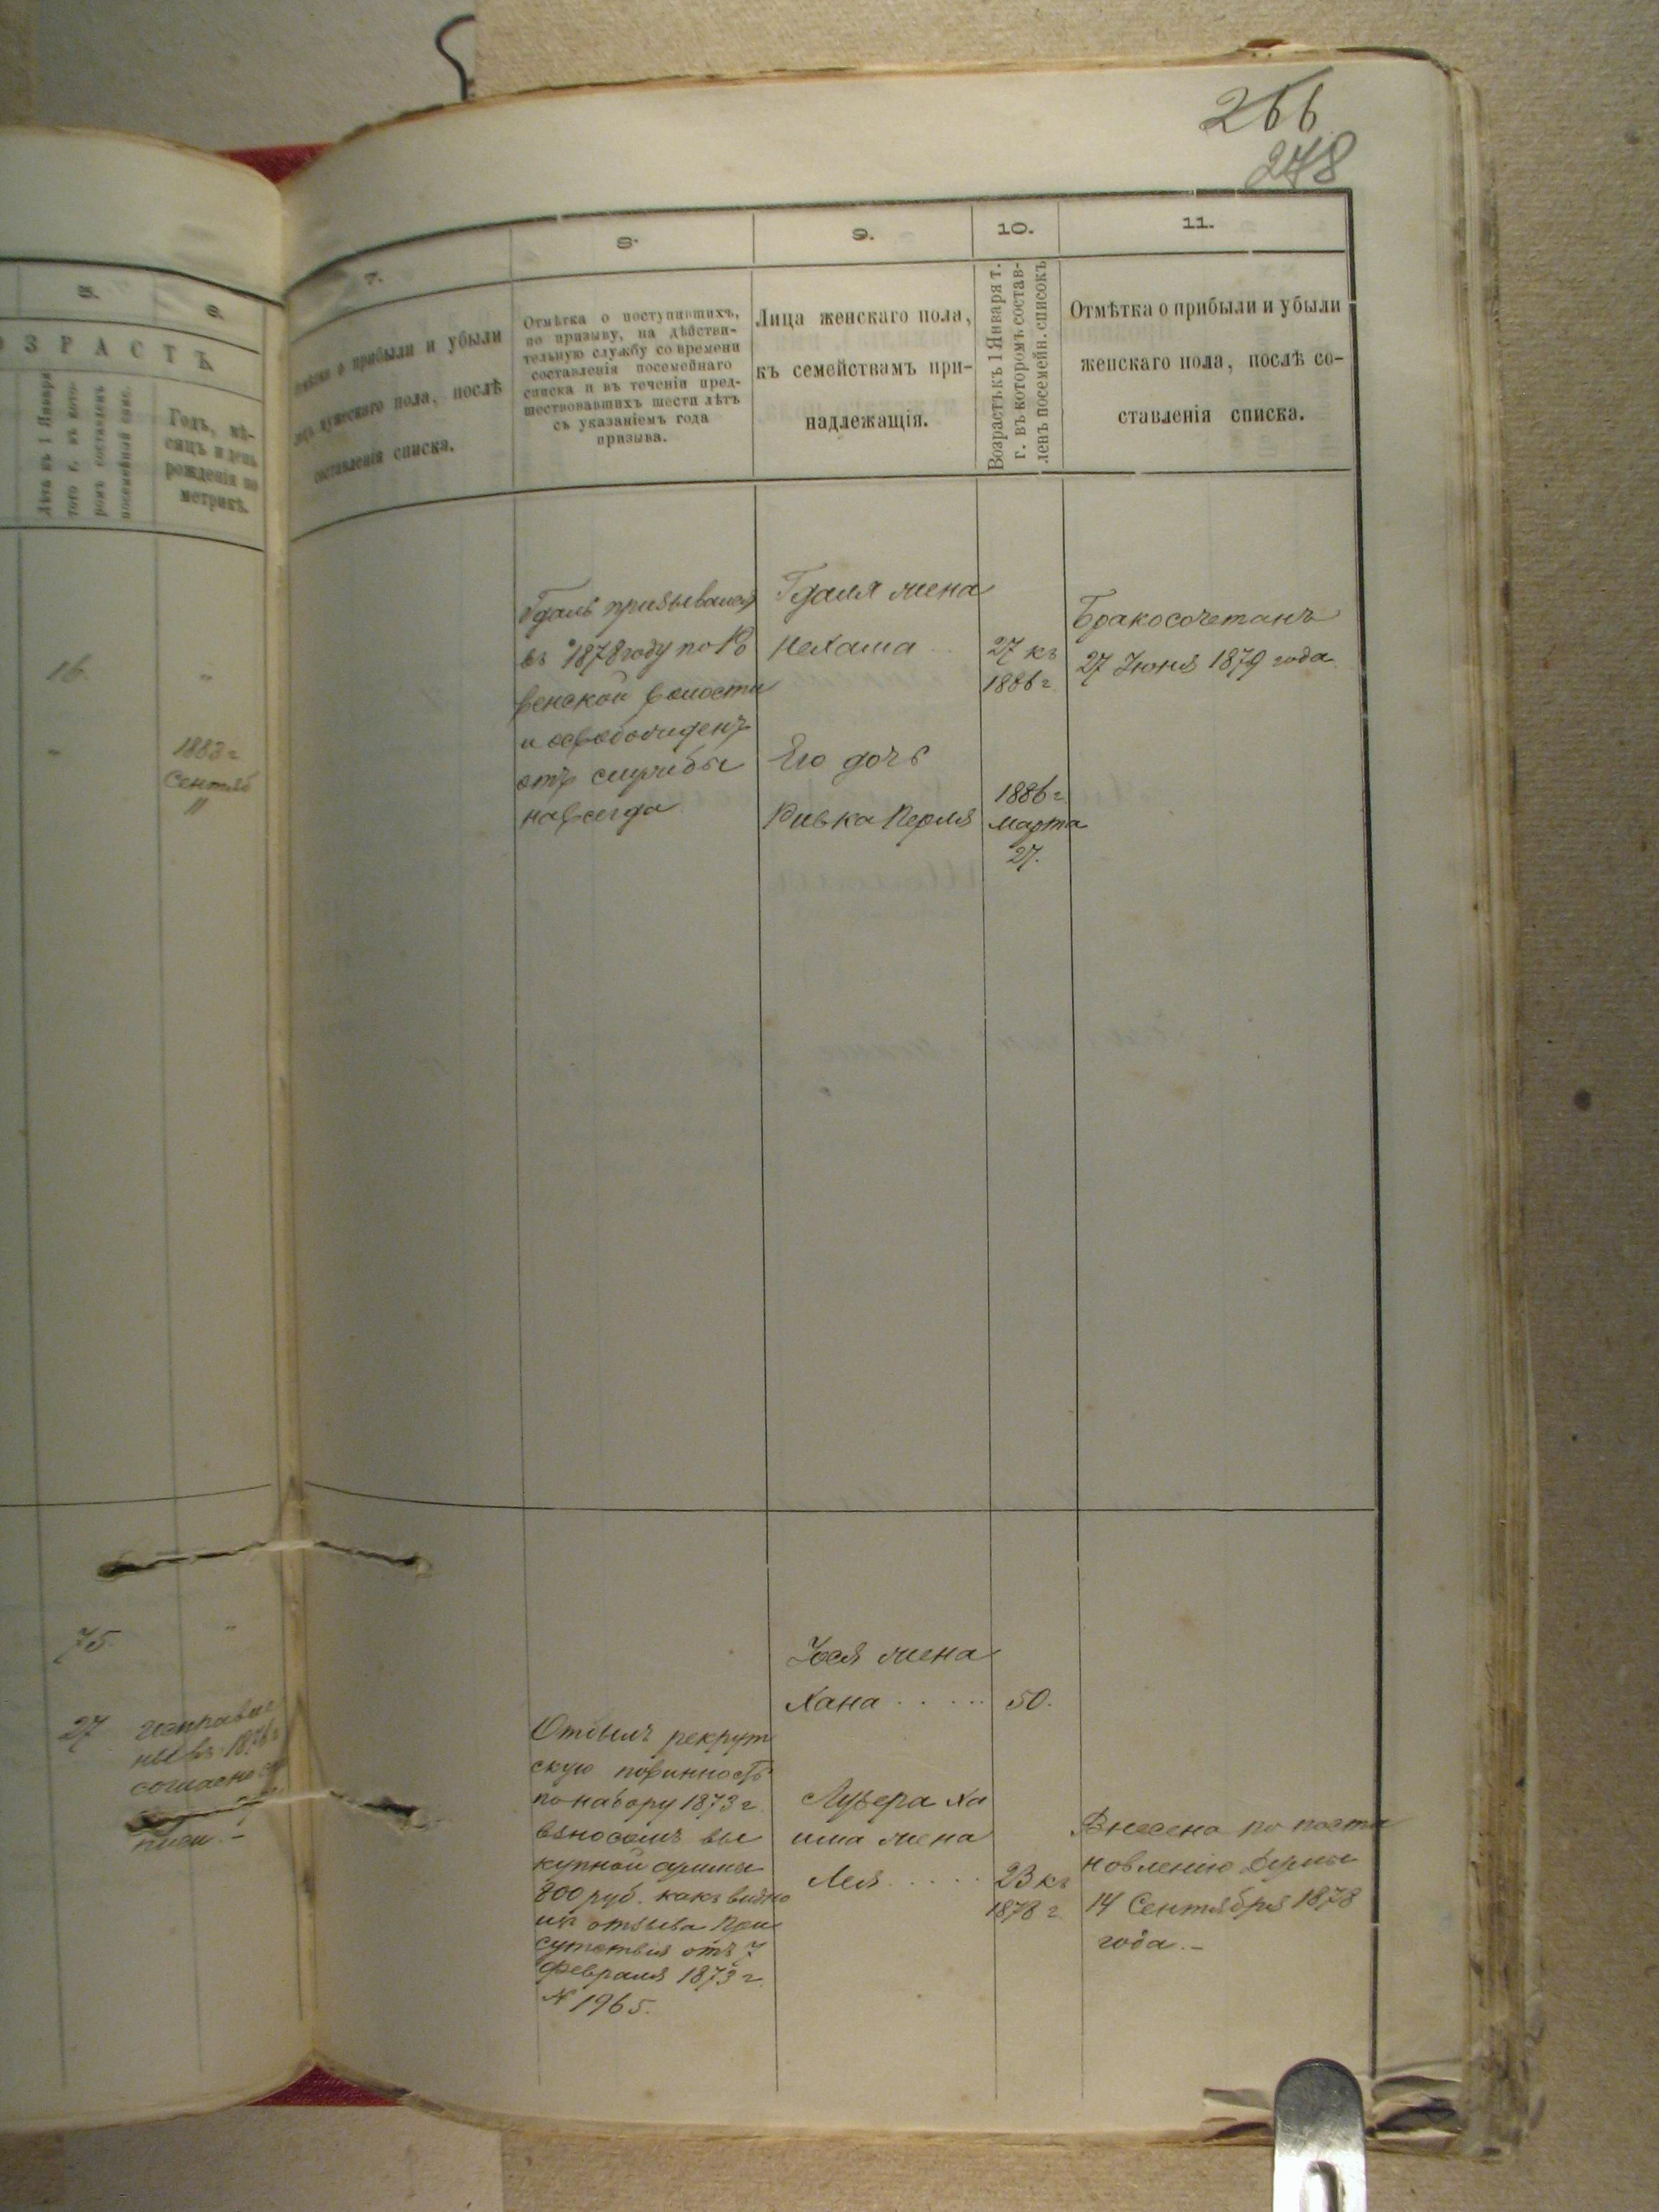 266
278
5.
6.
ОЗРАСТЪ
Лѣтъ къ 1 Января
того г. въ кото-
ромъ составленъ
посемейный спис.
Годъ, мѣ-
сяцъ и день
рожденія по
метрикѣ.
16
"
"
1883 г
Сентяб
11
75
"
27
1876
согласно
7.
8.
9.
10.
11.
о прибыли и убыли
лицъ мужескаго пола, послѣ
составленія списка.
Отмѣтка о поступившихъ,
по призыву, на дѣйстви-
тельную службу со времени
составленія посемейнаго
списка и въ теченіи пред-
шествовавшихъ шести лѣтъ
съ указаніемъ года
призыва.
Лица женскаго пола,
къ семействамъ при-
надлежащія.
Возрастъ къ 1 Января т.
г. въ которомъ состав-
ленъ посемейн. списокъ
Отмѣтка о прибыли и убыли
женскаго пола, послѣ со-
ставленія списка.
Гдаль призывался
въ 1878 году по Ко
венской волости
и освобожденъ
отъ службы
навсегда
Гдаля жена
Нехама
27 къ
1886 г
Бракосочетанъ
27 Іюня 1879 года
Его дочь
Ривка Перля
1886 г
марта
27.
Іося жена
Хана . . . . .
50.
Отбылъ рекрут
скую повинность
по набору 1873 г.
взносомъ вы
купной суммы
800 руб. какъ видно
изъ отзыва При
сутствія отъ 7
февраля 1873 г.
№ 1965.
Лузера Ха
има жена
Лея . . . . .
23 къ
1878 г.
Внесена по поста
новленію Думы
14 Сентября 1878
года. –